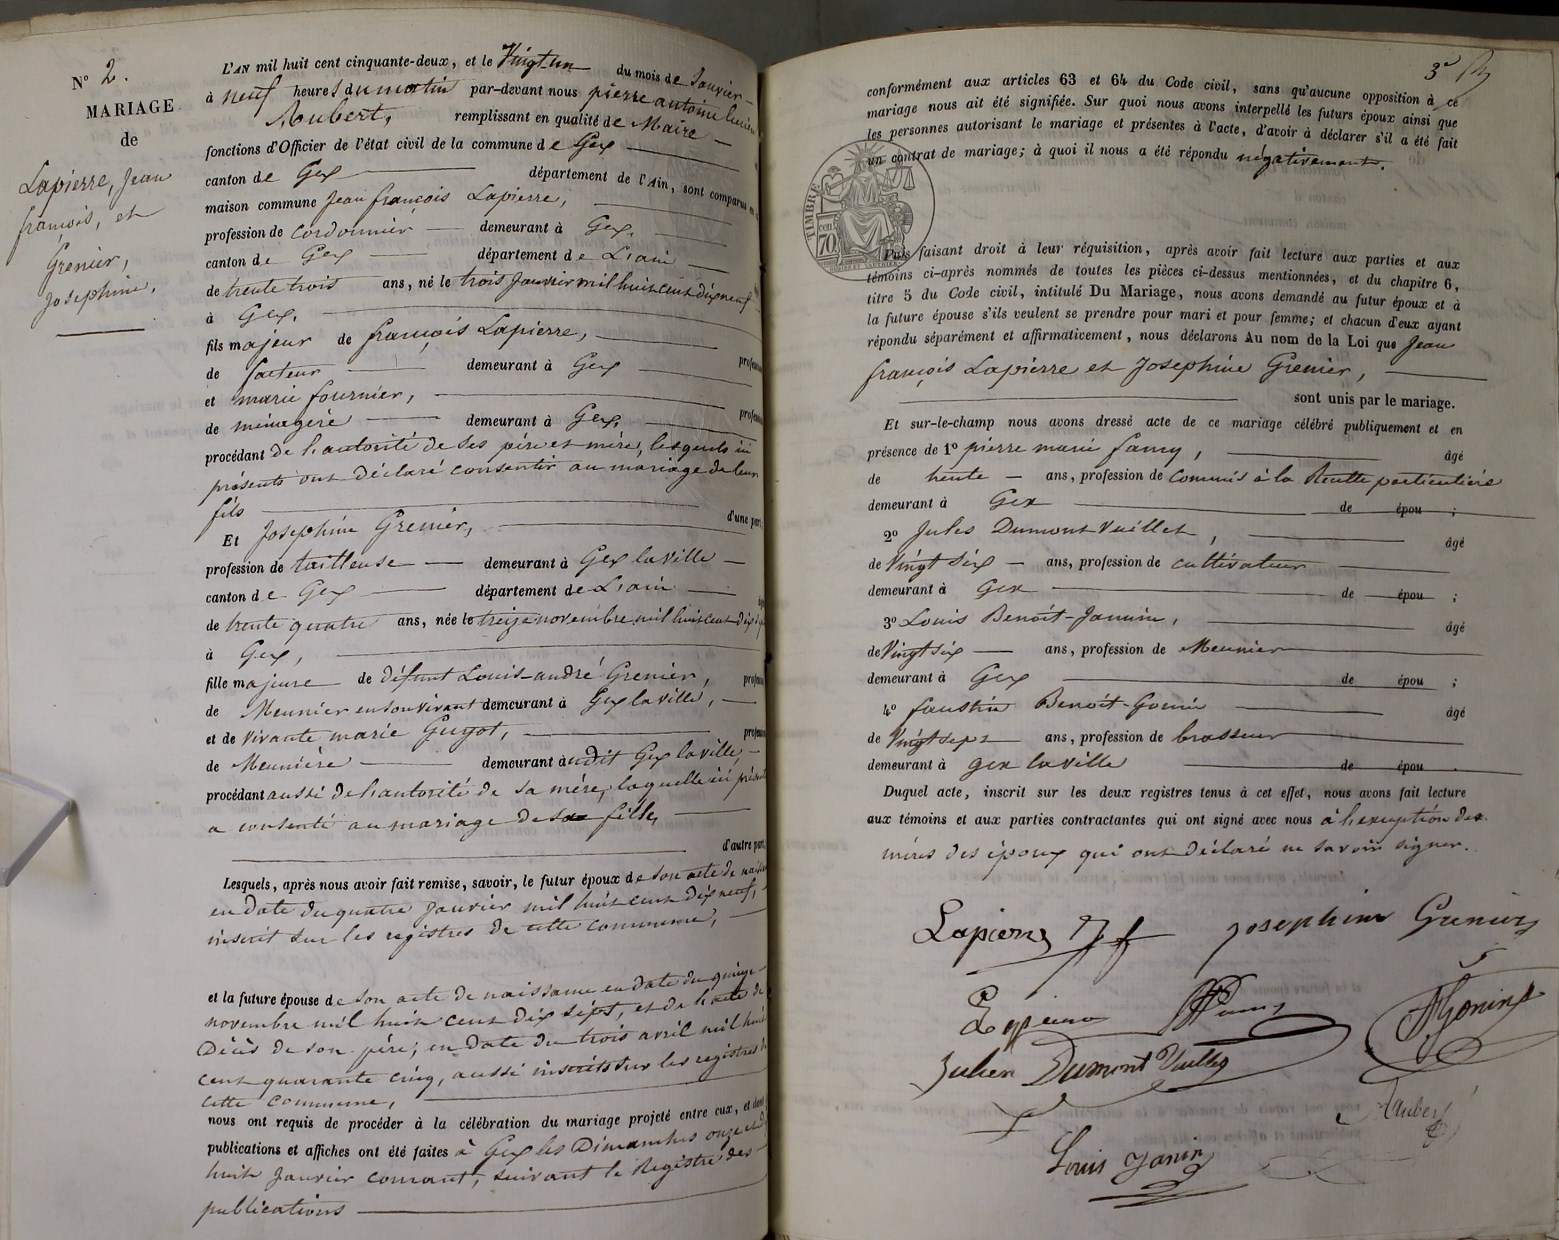 N° 2.
MARIAGE
de
Lapierre, Jean
francois, et
Grenier,
Josephine.
L'AN mil huit cent cinquante-deux, et le Vingt-un du mois de Janvier
à neuf heures du matin par-devant nous pierre antoine
Aubert, remplissant en qualité de Maire
fonctions d'Officier de l'état civil de la commune de Gex
canton de Gex département de l'Ain, sont comparus en
maison commune Jean françois Lapierre,
profession de cordonnier demeurant à Gex,
canton de Gex département de L'ain
de trente trois ans, né le trois Janvier mil huit cent dix neuf
à Gex,
fils majeur de françois Lapierre, profession
de facteur demeurant à Gex
et marie fournier, profession
de ménagère demeurant à Gex,
procédant de l'autorité de ses père et mère, lesquels ici
présents ont déclaré consentir au mariage de leur
fils d'une part,
Et Josephine Grenier,
profession de tailleuse demeurant à Gex la ville
canton de Gex département de L'ain
de trente quatre ans, née le treize novembre mil huit cent dix sept
à Gex,
fille majeure de défunt Louis-andré Grenier, profession
de Meunier en son vivant demeurant à Gex la ville,
et de vivante marie Guyot, profession
de Meunière demeurant àudit Gex la ville,
procédant aussi de l'autorité de sa mère, laquelle ici présente
a consenti au mariage de sa fille,
d'autre part.
Lesquels, après nous avoir fait remise, savoir, le futur époux de son acte de naissance
en date du quatre Janvier mil huit cent dix neuf,
inscrit sur les registres de cette commune,
et la future épouse de son acte de naissance en date du quinze
novembre mil huit cent dix sept, et de l'acte de
Décès de son père, en date du trois avril mil huit
cent quarante cinq, aussi inscrits sur les registres de
cette commune,
nous ont requis de procéder à la célébration du mariage projeté entre eux, et dont
publications et affiches ont été faites à Gex les Dimanches onze et dix
huit Janvier courant, suivant le Registre des
publications
3e
conformément aux articles 63 et 64 du Code civil, sans qu'aucune opposition à ce
mariage nous ait été signifiée. Sur quoi nous avons interpellé les futurs époux ainsi que
les personnes autorisant le mariage et présentes à l'acte, d'avoir à déclarer s'il a été fait
un contrat de mariage; à quoi il nous a été répondu négativement.
TIMBRE
70
Puis faisant droit à leur réquisition, après avoir fait lecture aux parties et aux
témoins ci-après nommés de toutes les pièces ci-dessus mentionnées, et du chapitre 6,
titre 5 du Code civil, intitulé Du Mariage, nous avons demandé au futur époux et à
la future épouse s'ils veulent se prendre pour mari et pour femme; et chacun d'eux ayant
répondu séparément et affirmativement, nous déclarons Au nom de la Loi que Jean
françois Lapierre et Josephine Grenier,
sont unis par le mariage.
Et sur-le-champ nous avons dressé acte de ce mariage célébré publiquement et en
présence de 1° pierre marie famy, âgé
de trente ans, profession de commis à la Recette particulière
demeurant à Gex de épou ;
2° Jules Dumont Vuillet, âgé
de Vingt six ans, profession de cultivateur
demeurant à Gex de épou ;
3° Louis Benoît-Janin, âgé
de Vingt six ans, profession de Meunier
demeurant à Gex de épou ;
4° faustin Benoit-Gonin âgé
de Vingt sept ans, profession de brasseur
demeurant à gex la ville de épou .
Duquel acte, inscrit sur les deux registres tenus à cet effet, nous avons fait lecture
aux témoins et aux parties contractantes qui ont signé avec nous à l'exception des
mères des époux qui ont déclaré ne savoir signer.
Lapierre J f Josephine Grenier
Lapierre Famy FGonin
Julien Dumont Vuillet
Aubert
Louis Janin